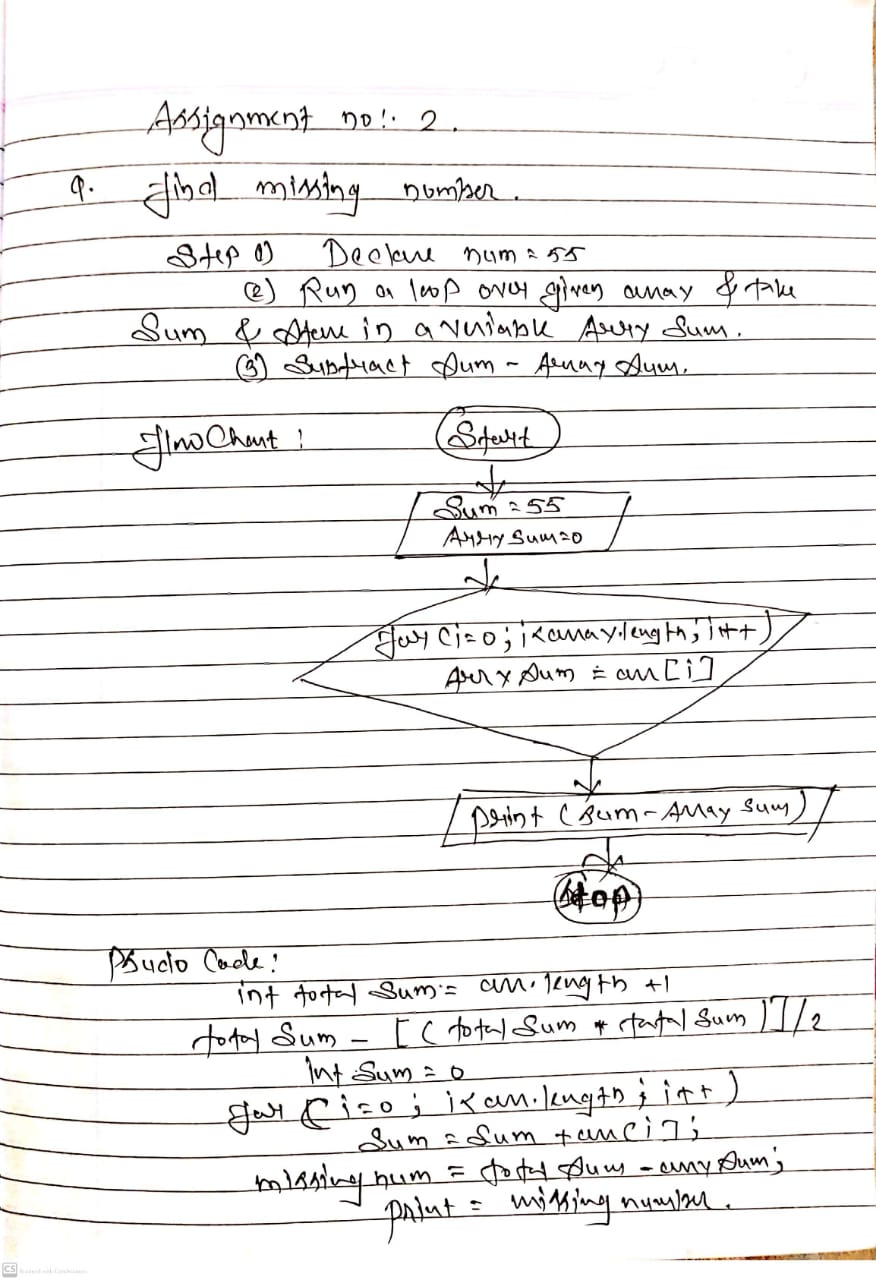 Assignment no:. 2.
Q. Find missing number.
Step 1) Declare num = 55
(2) Run a loop over given array & take
Sum & Store in a variable Array Sum.
(3) Subtract Sum - Array Sum.
FlowChart :
Start
Sum = 55
Array Sum=0
for (i=0; i<array.length; i++)
Array Sum += arr[i]
print (Sum - Array Sum)
Stop
Psudo Code:
int total Sum = arr.length +1
total Sum - [( total Sum * total Sum )]/2
Int Sum = 0
for (i=0; i<arr.length; i++)
Sum = Sum + arr[i];
missing num = total Sum - array Sum;
print = missing number.
CS Scanned with CamScanner